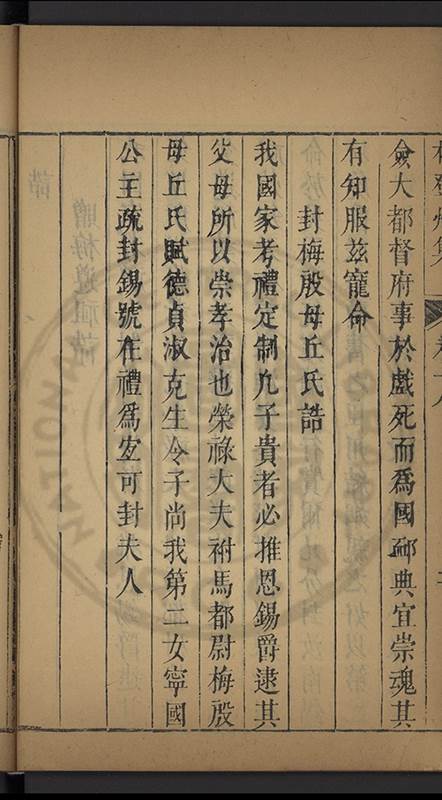 僉大都督府事於戲死而爲國邺典宜崇魂其
有知服茲寵命
封梅殷母丘氏誥
我國家考禮定制凢子貴者必推恩錫爵逮其
父母所以崇孝治也榮祿大夫祔馬都尉梅殷
母丘氏賦德貞淑克生令子尚我第二女寧國
公主疏封錫號在禮爲宜可封夫人